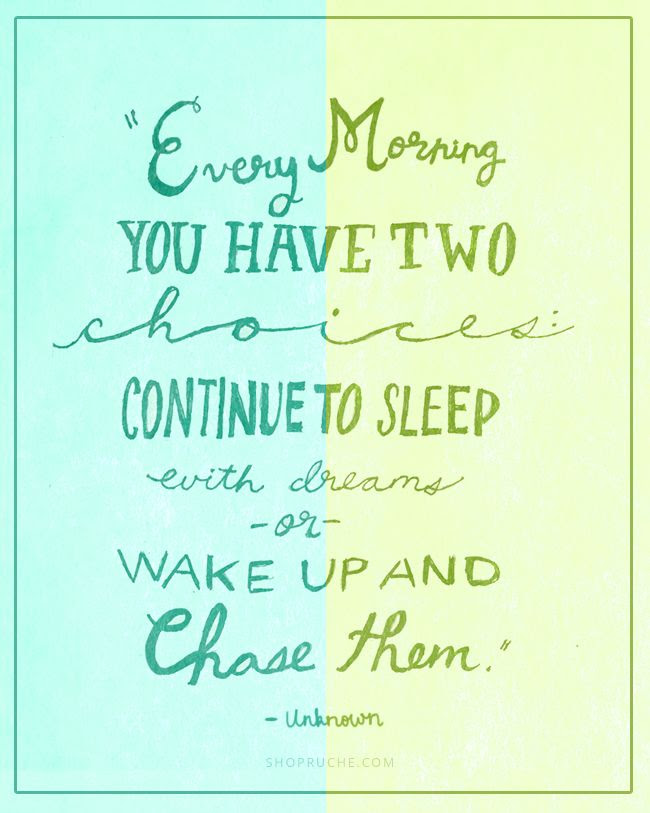 "Every Morning
YOU HAVE TWO
choices:
CONTINUE TO SLEEP
with dreams
-or-
WAKE UP AND
Chase them."
- Unknown
SHOPRUCHE.COM